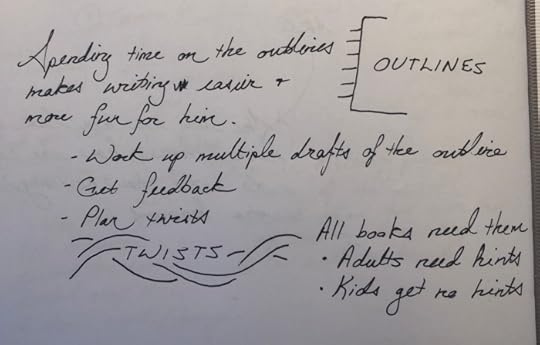 Spending time on the outlines
makes writing easier +
more fun for him.
OUTLINES
- Work up multiple drafts of the outline
- Get feedback
- Plan twists
TWISTS
All books need them
• Adults need hints
• Kids get no hints